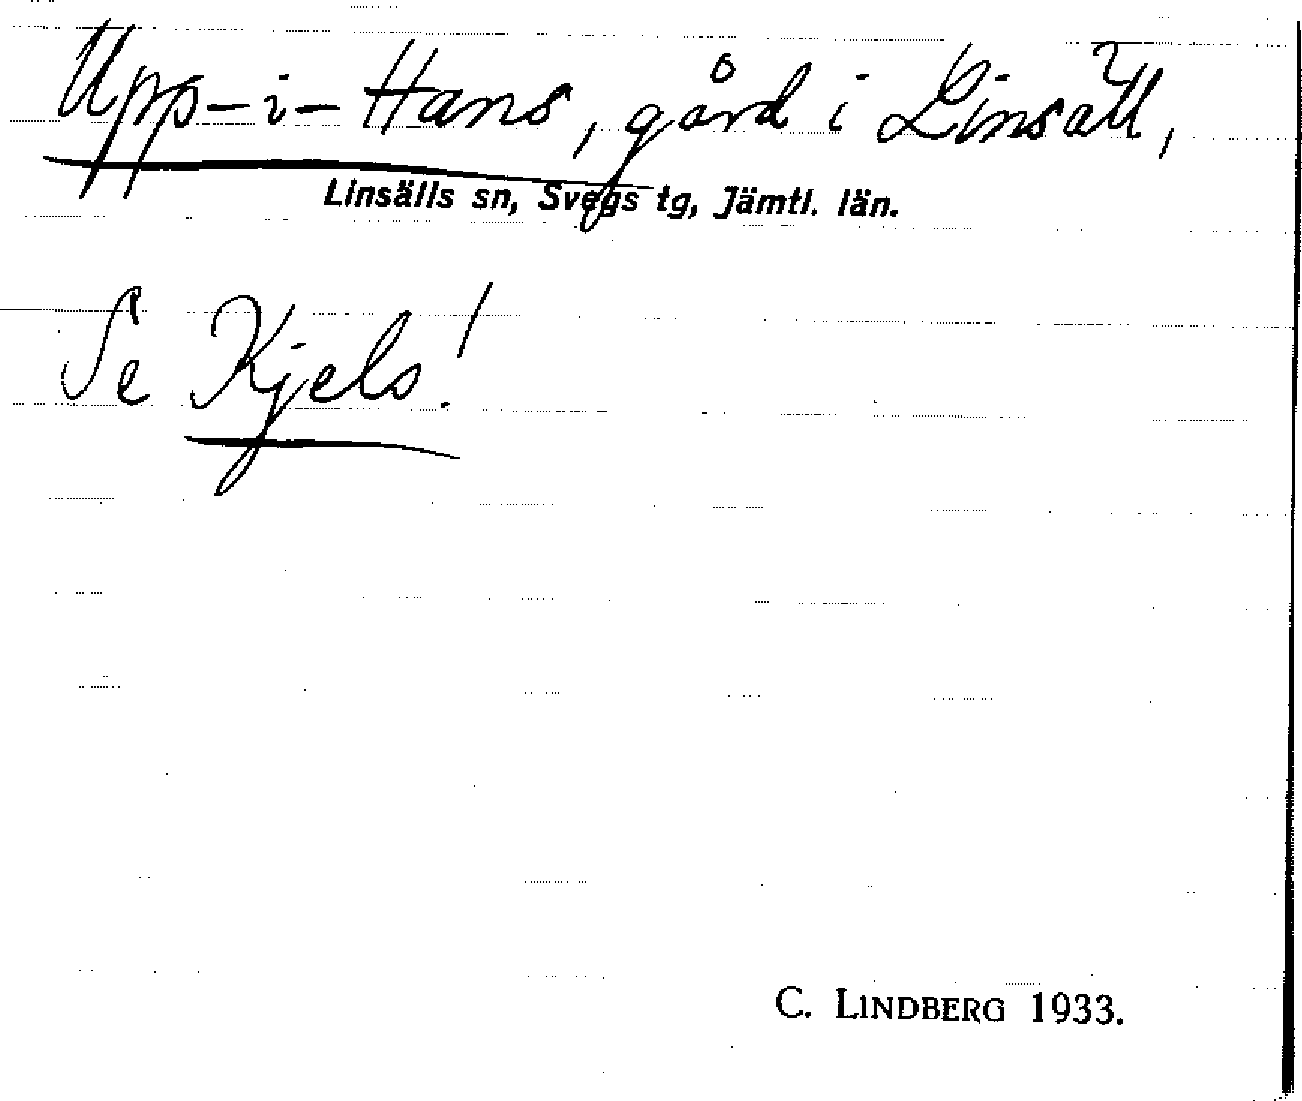 Upp-i-Hans, gård i Linsäll,
Linsälls sn, Svegs tg, Jämtl. län.
Se Kjels!
C. LINDBERG 1933.